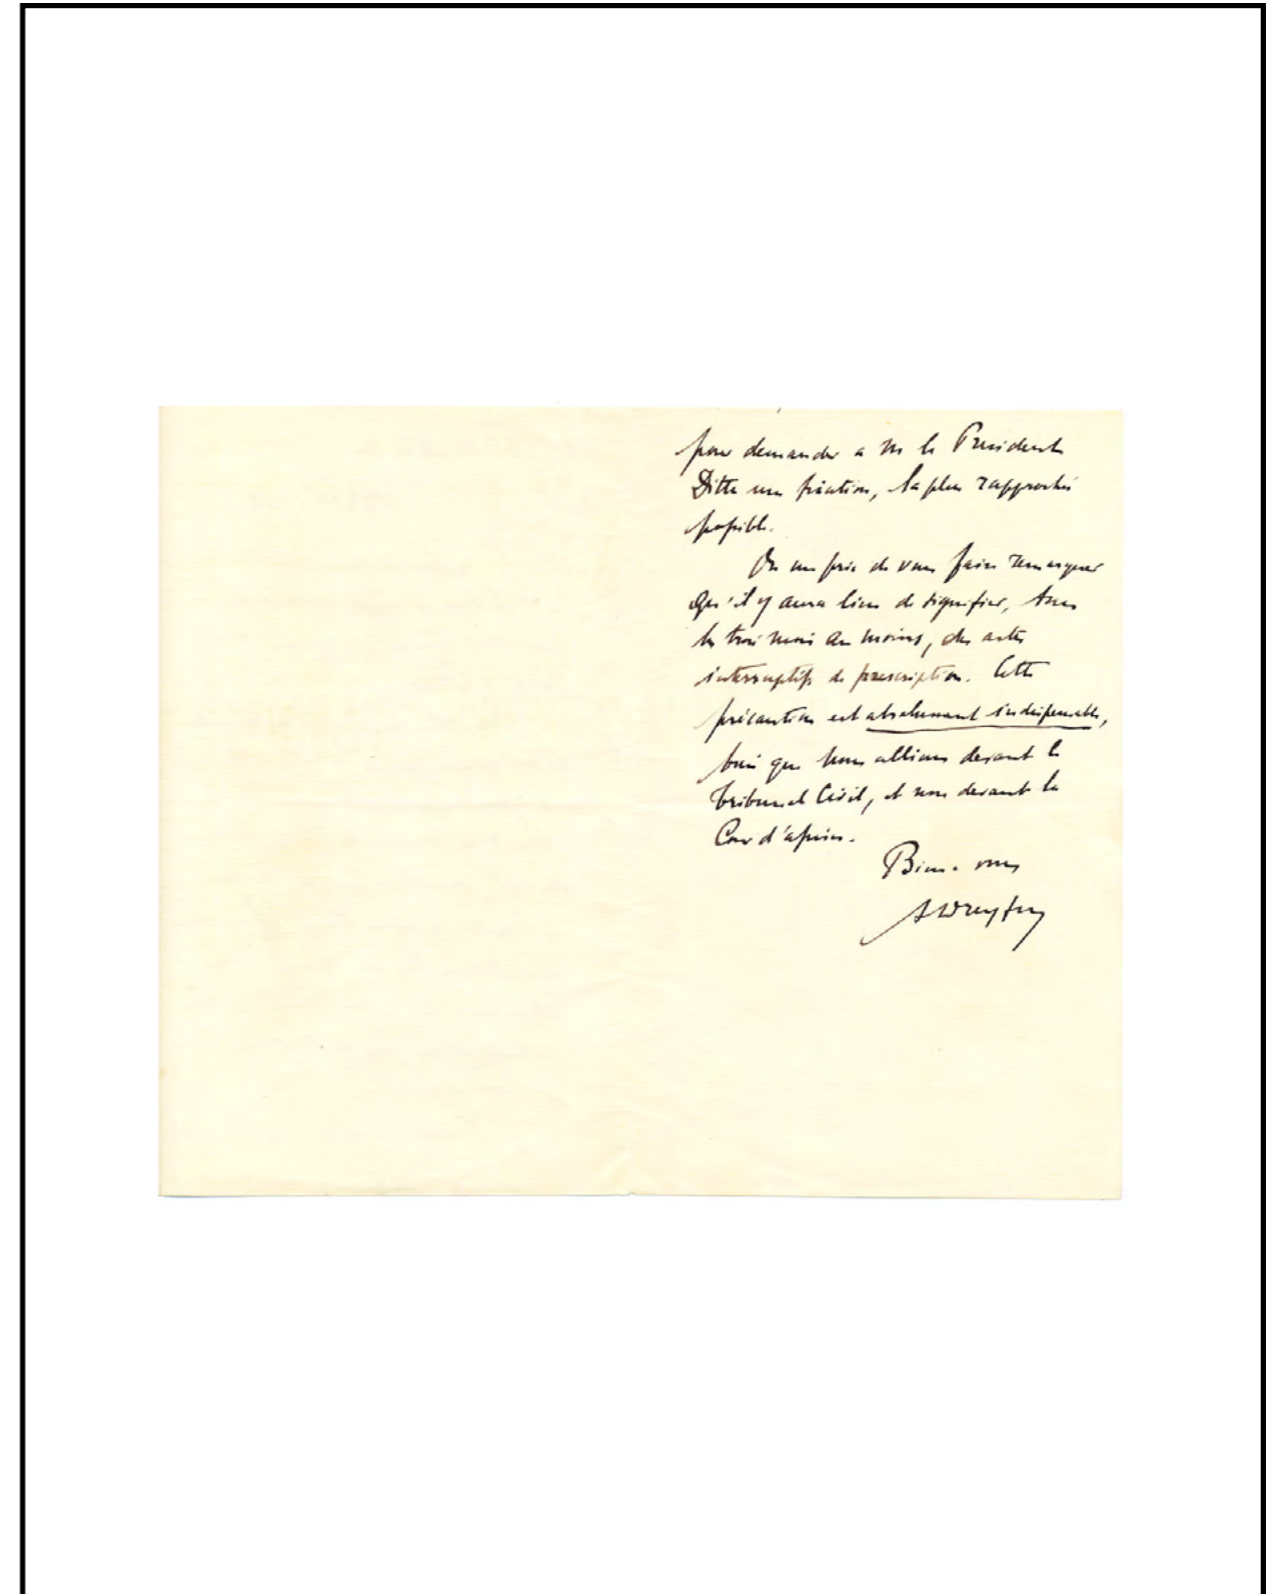 pour demander a M le President
Ditte une fixation, la plus rapprochée
possible.
On me prie de vous faire remarquer
qu'il y aura lieu de signifier, tous
les trois mois au moins, des actes
interruptifs de prescription. Cette
précaution est absolument indispensable,
bien que nous allions devant le
Tribunal Civil, et non devant la
Cour d'assises.
Bien a vous
ADreyfus